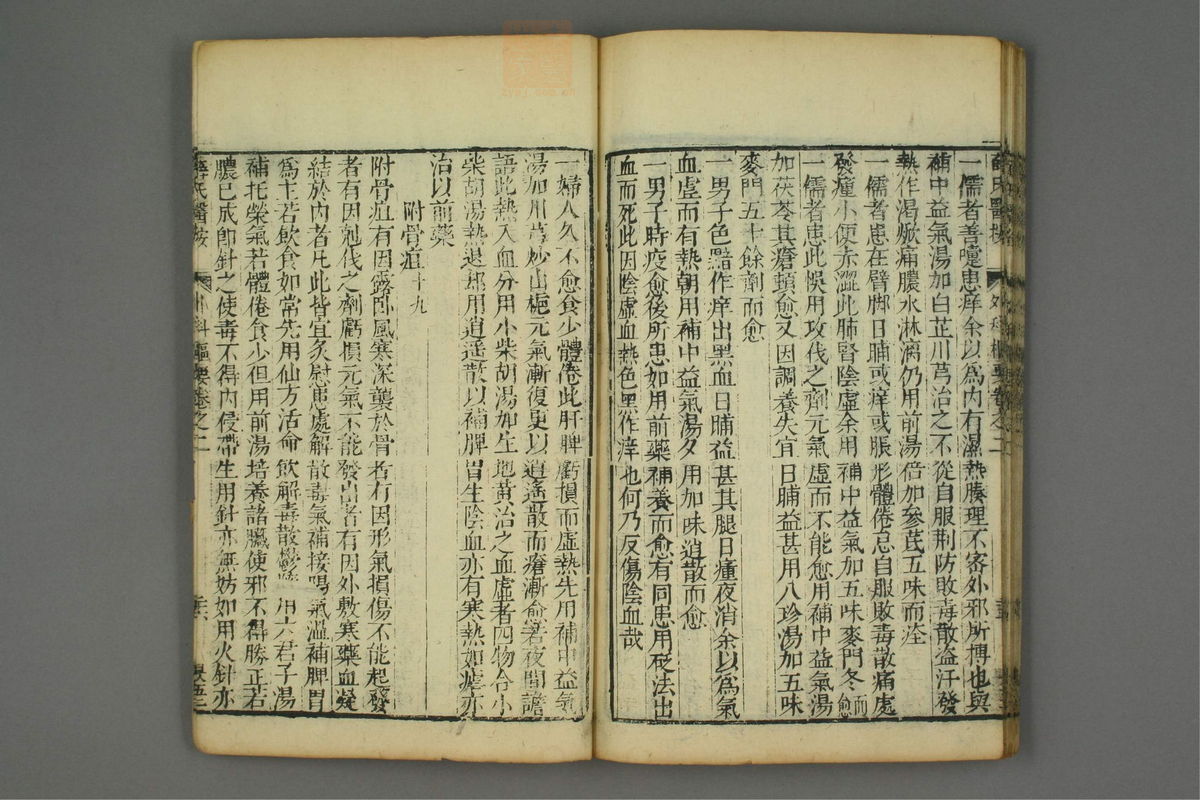 薛氏醫按 外科樞要卷之二
一儒者善嚏患痒余以爲内有濕熱腠理不密外邪所搏也與
補中益氣湯加白芷川芎治之不從自服荆防敗毒散盗汗發
熱作渴焮痛膿水淋漓仍用前湯倍加參芪五味而痊
一儒者患在臂脚日晡或痒或脹形體倦怠自服敗毒散痛處
發瘇小便赤澀此肺腎陰虛余用補中益氣加五味麥門冬而愈
一儒者患此悞用攻伐之劑元氣虛而不能愈用補中益氣湯
加茯苓其瘡頓愈又因調養失宜日晡益甚用八珍湯加五味
麥門五十餘劑而愈
一男子色黯作痒出黑血日晡益甚其腿日瘇夜消余以爲氣
血虛而有熱朝用補中益氣湯夕用加味逍散而愈
一男子時疫愈後所患如用前藥補養而愈有同患用砭法出
血而死此因陰虛血熱色黑作痒也何乃反傷陰血哉
一婦人久不愈食少體倦此肝脾虧損而虛熱先用補中益氣
湯加川芎炒山梔元氣漸復更以逍遥散而瘡漸愈若夜間譫
語此熱入血分用小柴胡湯加生地黄治之血虛者四物合小
柴胡湯熱退却用逍遥散以補脾胃生陰血亦有寒熱如瘧亦
治以前藥
附骨疽十九
附骨疽有因露卧風寒深襲於骨者有因形氣損傷不能起發
者有因剋伐之劑虧損元氣不能發出者有因外敷寒藥血凝
結於内者凡此皆宜灸熨患處解散毒氣補接陽氣温補脾胃
爲主若飲食如常先用仙方活命飲解毒散鬱 用六君子湯
補托榮氣若體倦食少但用前湯培養諸臟使邪不得勝正若
膿已成卽針之使毒不得内侵帶生用針亦無妨如用火針亦
薛氏醫按 外科樞要卷之二